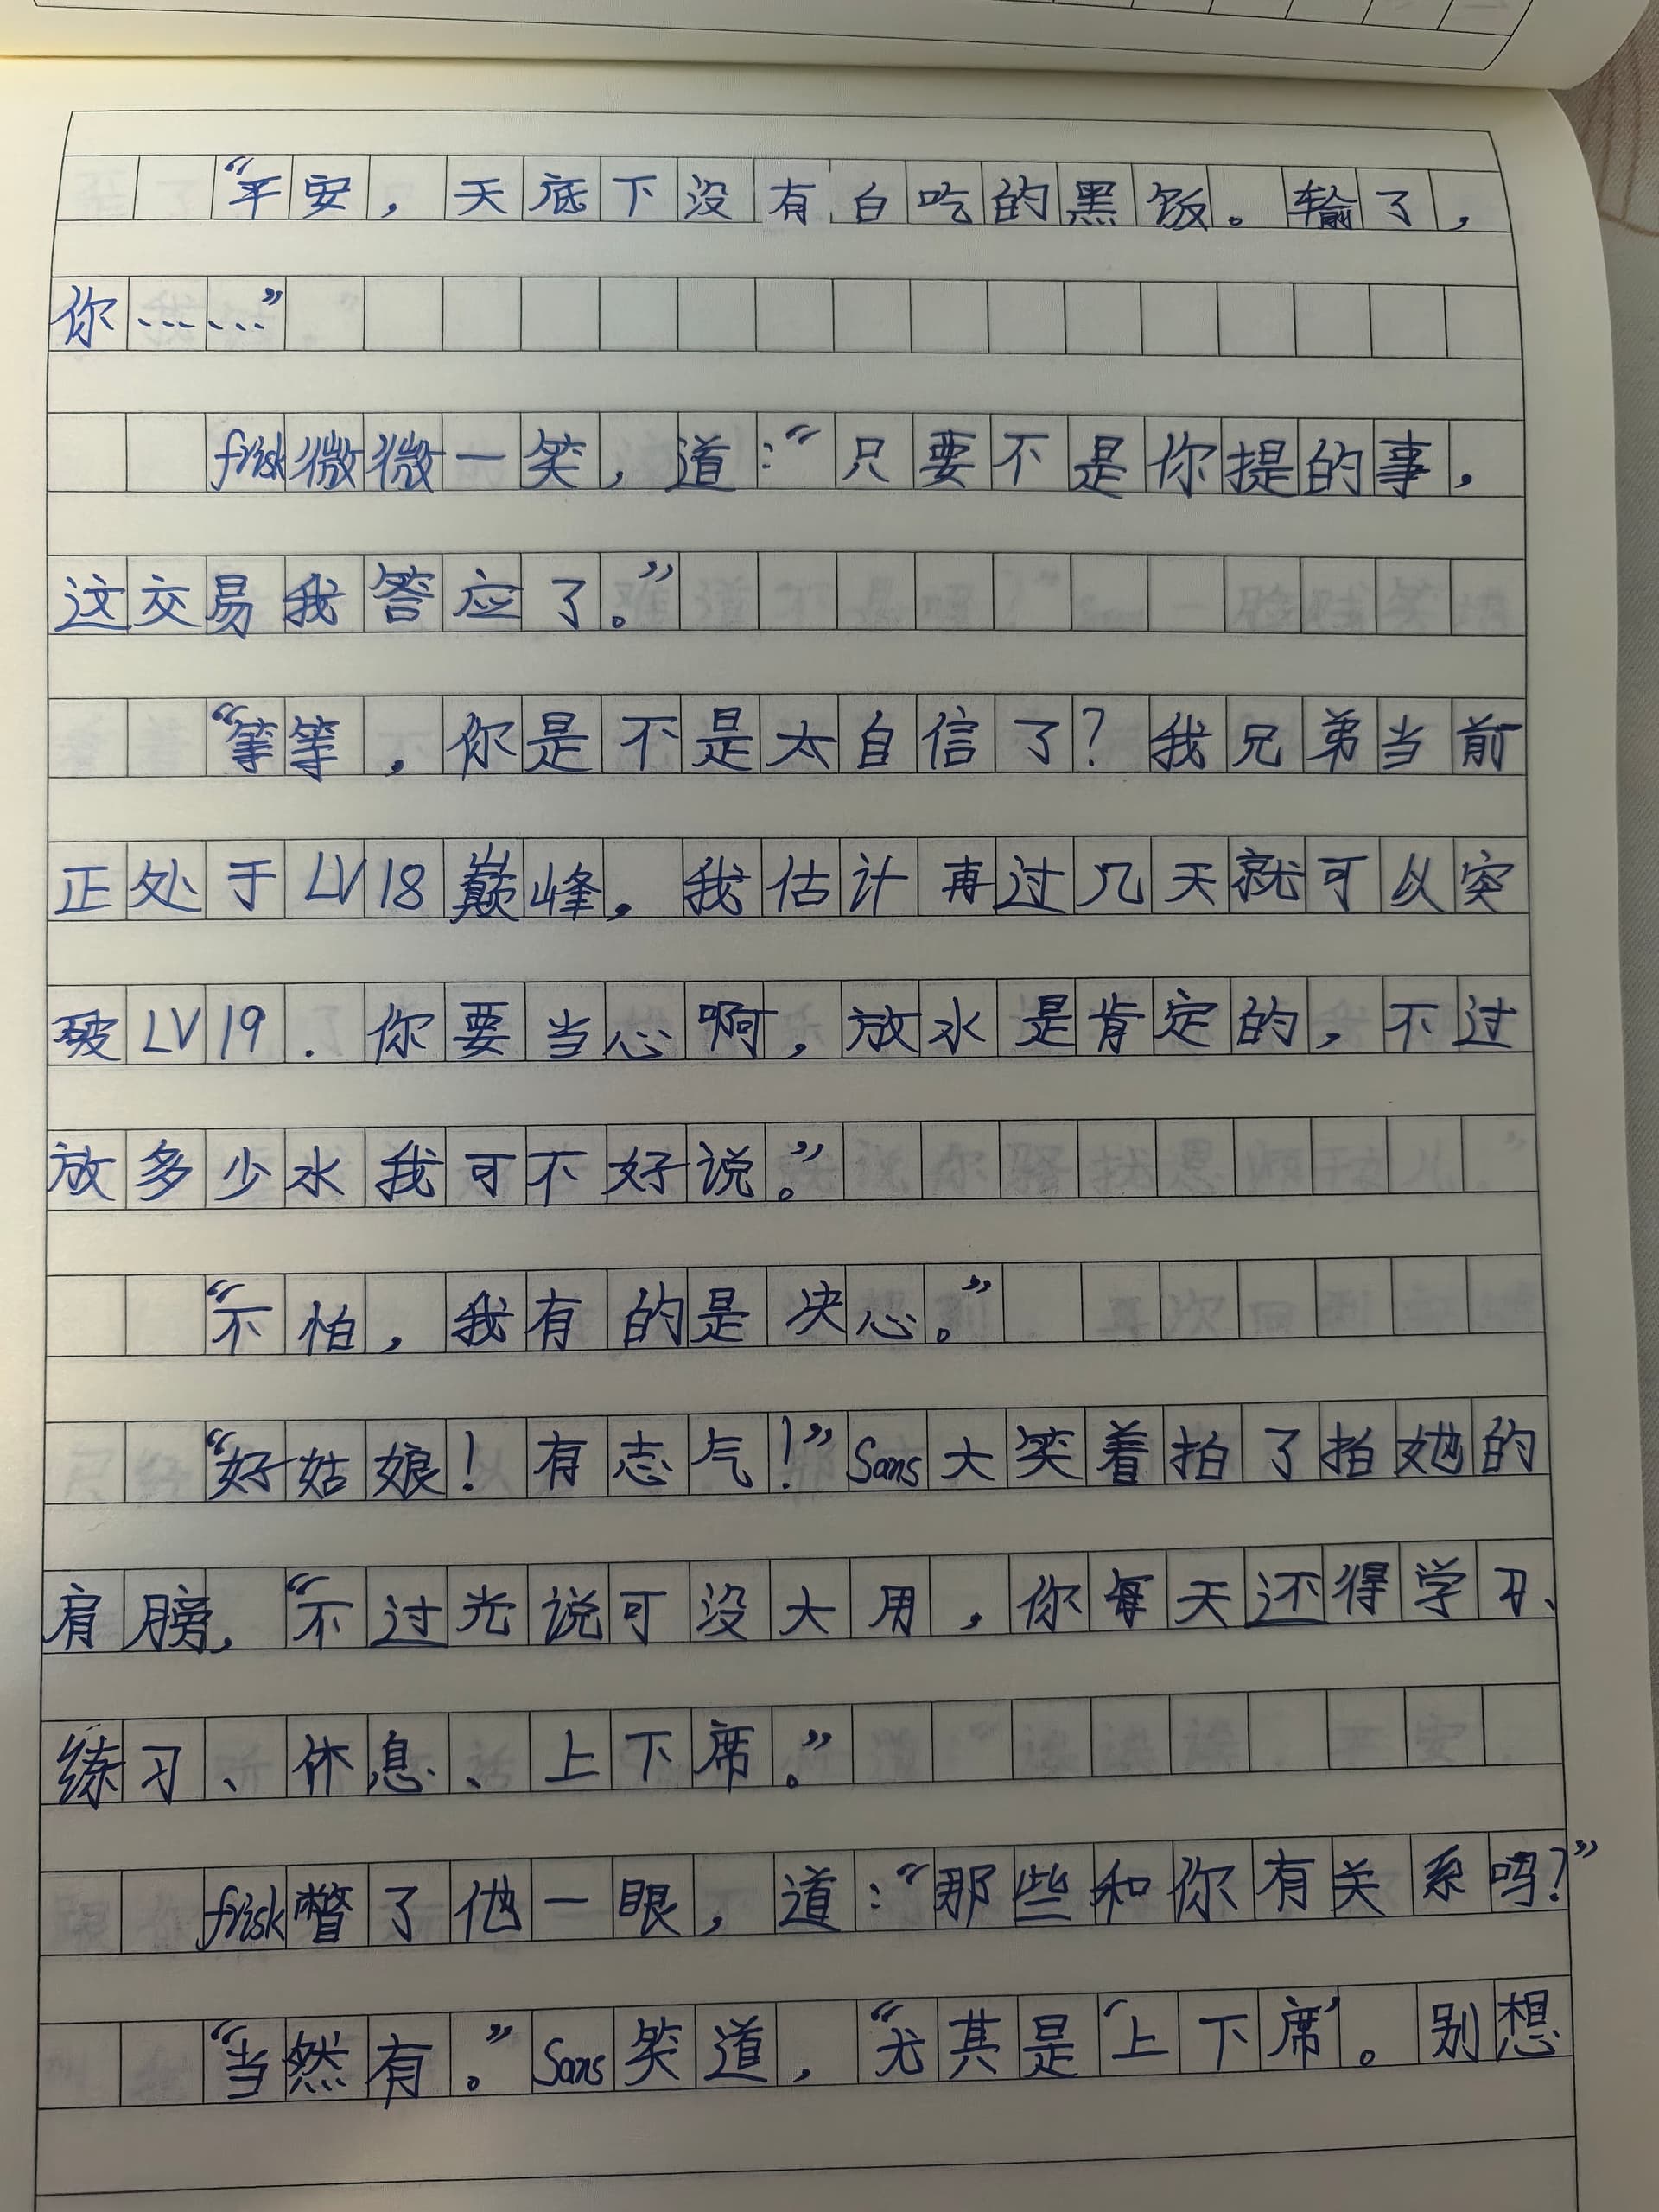 “平安，天底下没有白吃的黑饭。输了，
你……”
frisk微微一笑，道：“只要不是你提的事，
这交易我答应了。”
“等等，你是不是太自信了？我兄弟当前
正处于LV18巅峰，我估计再过几天就可以突
破LV19．你要当心啊，放水是肯定的，不过
放多少水我可不好说。”
“不怕，我有的是决心。”
“好姑娘！有志气！”Sans大笑着拍了拍她的
肩膀，“不过光说可没大用，你每天还得学习、
练习、休息、上下席。”
frisk瞥了他一眼，道：“那些和你有关系吗？”
“当然有。”Sans笑道，“尤其是‘上下席’。别想